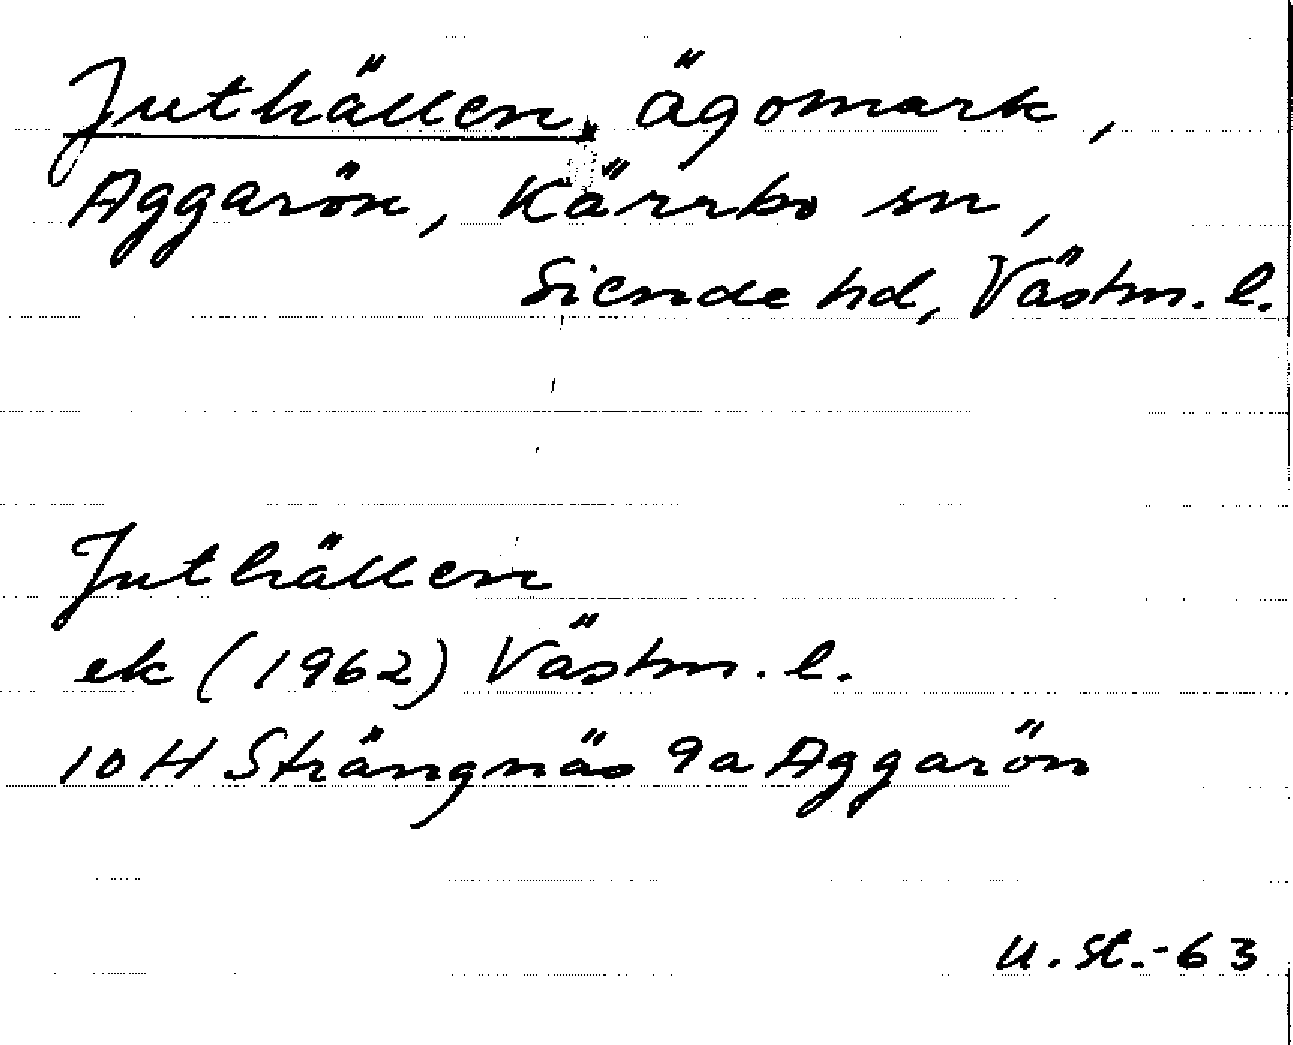 Juthällen, ägomark,
Aggarön, Kärrbo sn,
Siende hd, Västm. l.
Juthällen
ek (1962) Västm. l.
10 H Strängnäs 9a Aggarön
U. St. -63